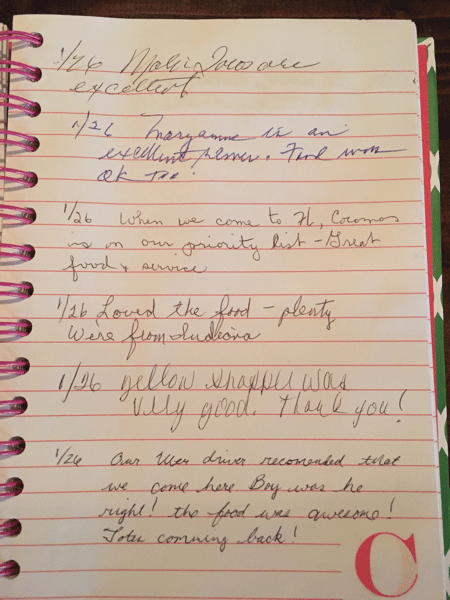 1/26 Mahi Tacos are
excellent
1/26 Maryanne is an
excellent server. Food was
OK too!
1/26 When we come to FL, Coconuts
is on our priority list - Great
food & service
1/26 Loved the food - plenty
Were from Indiana
1/26 yellow snapper was
very good. Thank you!
1/26 Our Uber driver recomended that
we come here Boy was he
right! the food was awesome!
Totes comming back!
C